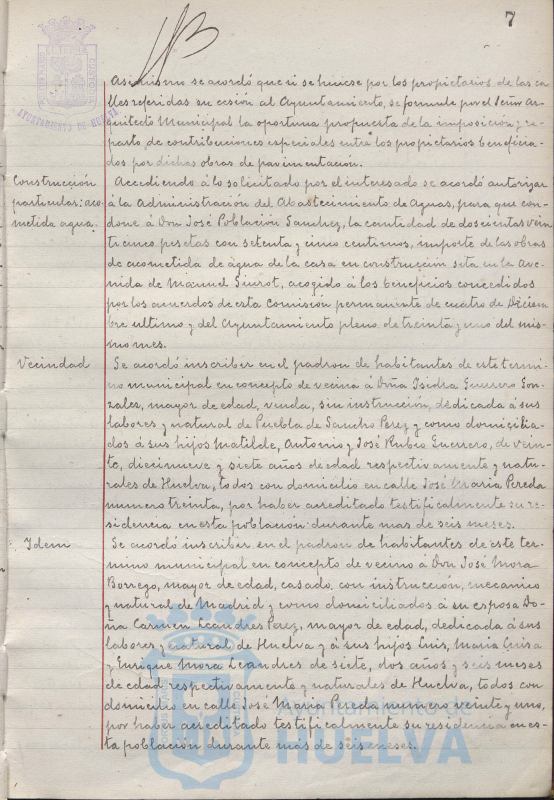 7
AYUNTAMIENTO DE HUELVA
Asimismo se acordó que si se hiciese por los propietarios de las ca
lles referidas su cesión al Ayuntamiento, se formule por el Señor Ar
quitecto Municipal la oportuna propuesta de la imposición y re
parto de contribuciones especiales entre los propietarios beneficia
dos por dichas obras de pavimentación.
Construcción
particular: aco
metida agua.
Accediendo á lo solicitado por el interesado se acordó autorizar
á la Administración del Abastecimiento de Aguas, para que con
done á Don José Población Sanchez, la cantidad de doscientas vein
ticinco pesetas con setenta y cinco centimos, importe de las obras
de acometida de agua de la casa en construcción sita en la Ave
nida de Manuel Siurot, acogido á los beneficios concedidos
por los acuerdos de esta Comisión permanente de cuatro de Diciem
bre ultimo y del Ayuntamiento pleno de treinta y uno del mis
mo mes.
Vecindad
Se acordó inscribir en el padron de habitantes de este termi
no municipal en concepto de vecina á Doña Isidra Guerrero Gon
zales, mayor de edad, viuda, sin instrucción, dedicada á sus
labores y natural de Puebla de Sancho Perez y como domicilia
dos á sus hijos Matilde, Antonio y José Rubio Guerrero, de vein
te, diecinueve y siete años de edad respectivamente y natu
rales de Huelva, todos con domicilio en calle José Maria Pereda
numero treinta, por haber acreditado testificalmente su re
sidencia en esta población durante mas de seis meses.
Idem
Se acordó inscribir en el padron de habitantes de este ter
mino municipal en concepto de vecino á Don José Mora
Borrego, mayor de edad, casado, con instrucción, mecanico
y natural de Madrid y como domiciliados á su esposa Do
ña Carmen Leandres Perez, mayor de edad, dedicada á sus
labores y natural de Huelva y á sus hijos Luis, Maria Luisa
y Enrique Mora Leandres de siete, dos años y seis meses
de edad respectivamente y naturales de Huelva, todos con
domicilio en calle José Maria Pereda numero veinte y uno,
por haber acreditado testificalmente su residencia en es
ta población durante más de seis meses.
Ayuntamiento de
HUELVA